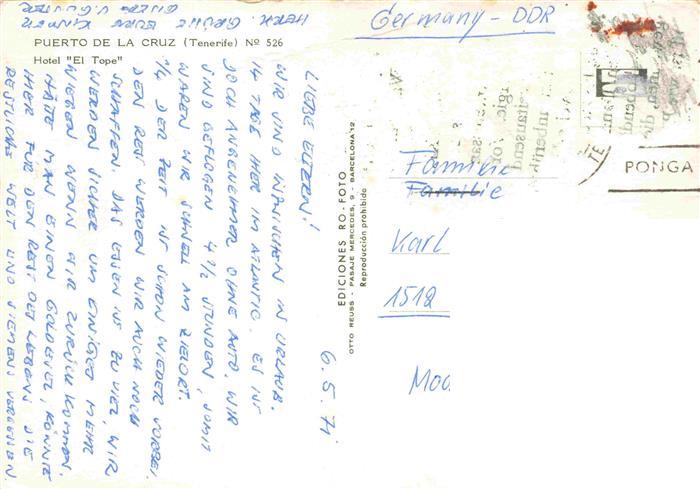 PUERTO DE LA CRUZ (Tenerife) Nº 526
Hotel "El Tope"
6.5.71
LIEBE ELTERN!
WIR SIND INZWISCHEN IN URLAUB.
14 TAGE HIER IM ATLANTIC. ES IST
DOCH ANGENEHMER OHNE AUTO. WIR
SIND GEFLOGEN 4 1/2 STUNDEN, SOMIT
WAREN WIR SCHNELL AM ZIELORT.
DER ZEIT IST SCHON WIEDER VORBEI.
DEN REST WERDEN WIR AUCH NOCH
SCHAFFEN. DAS ESSEN IST ZU VIEL, WIR
WERDEN SICHER UM EINIGES MEHR
WIEGEN WENN WIR ZURÜCK KOMMEN.
HÄTTE MAN EINEN GOLDESEL, KÖNNTE
MAN HIER FÜR DEN REST DES LEBENS DIE
RESTLICHE WELT UND SIEMENS VERGESSEN.
HERZL. GRÜSSE EURE KINDER
U. GÜNTER
EDICIONES RO-FOTO
OTTO REUSS - PASAJE MERCEDES, 9 - BARCELONA 12
Reproducción prohibida
Germany - DDR
PONGA
Familie
Familie
Karl
1512